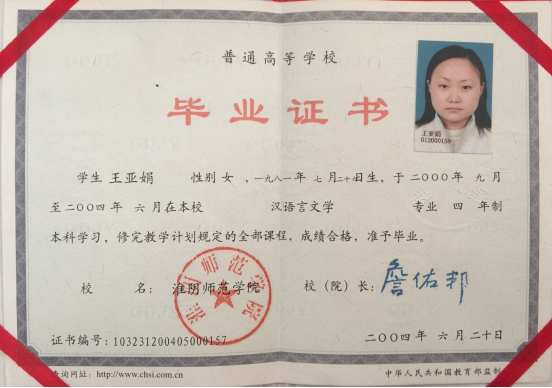 普通高等学校
毕业证书
王亚娟
012000159
学生 王亚娟 性别 女 ,一九八一年 七月二十日生,于二〇〇〇年 九月
至二〇〇四年 六月在本校 汉语言文学 专业 四 年制
本科学习,修完教学计划规定的全部课程,成绩合格,准予毕业。
校 名: 淮阴师范学院 校(院)长: 詹佑邦
淮阴师范学院
证书编号: 103231200405000157 二〇〇四年 六月二十日
查询网址: http://www.chsi.com.cn 中华人民共和国教育部监制